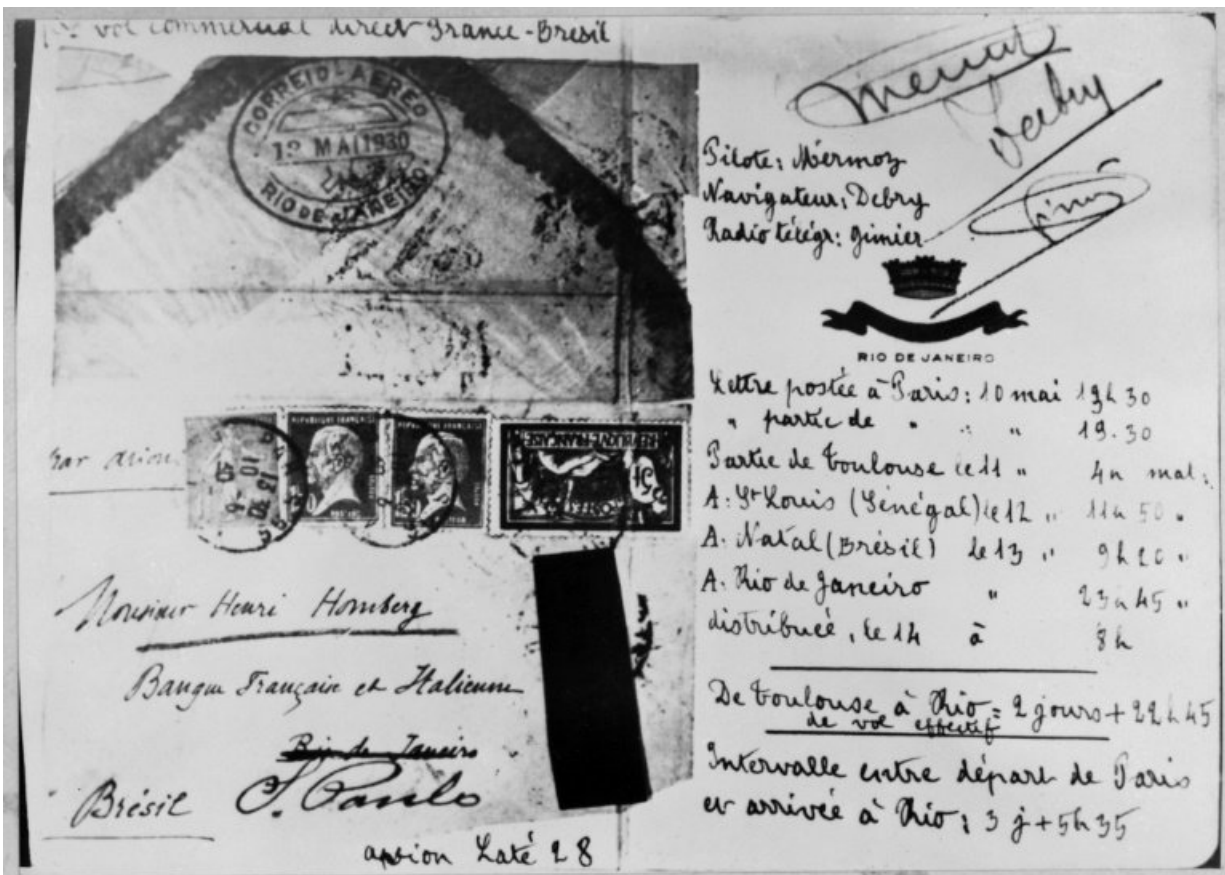 1er vol commercial direct France-Brésil
CORREIO-AEREO
13 MAI 1930
RIO DE JANEIRO
Par avion
REPUBLIQUE FRANÇAISE
REPUBLIQUE FRANÇAISE
POSTES
Monsieur Henri Homberg
Banque Française et Italienne
Rio de Janeiro
Brésil S. Paulo
avion Laté 28
Debry
Pilote: Mermoz
Navigateur: Debry
Radio télégr: Gimier
RIO DE JANEIRO
Lettre postée à Paris: 10 mai 19h 30
" partie de " " " 19.30
Partie de Toulouse le 11 " 4h mat:
A. St Louis (Sénégal) le 12 " 11h 50 "
A. Natal (Brésil) le 13 " 9h20 "
A. Rio de Janeiro " 23h45 "
distribuée, le 14 à 8h
De Toulouse à Rio = 2 jours + 22h45
de vol effectif
Intervalle entre départ de Paris
et arrivée à Rio: 3 j + 5h35